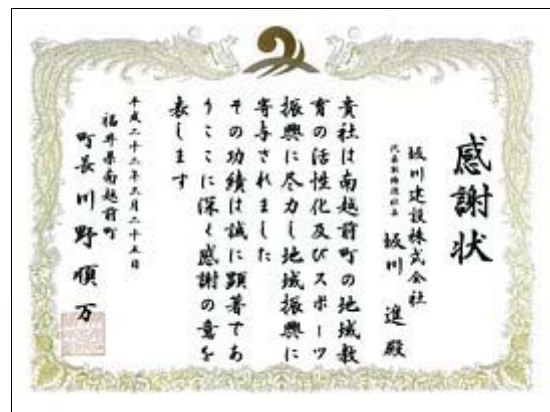 感謝状
坂川建設株式会社
代表取締役社長 坂川 進 殿
貴社は南越前町の地域教
育の活性化及びスポーツ
振興に尽力し地域振興に
寄与されました
その功績は誠に顕著であ
りここに深く感謝の意を
表します
平成二十二年三月二十五日
福井県南越前町
町長 川野順万